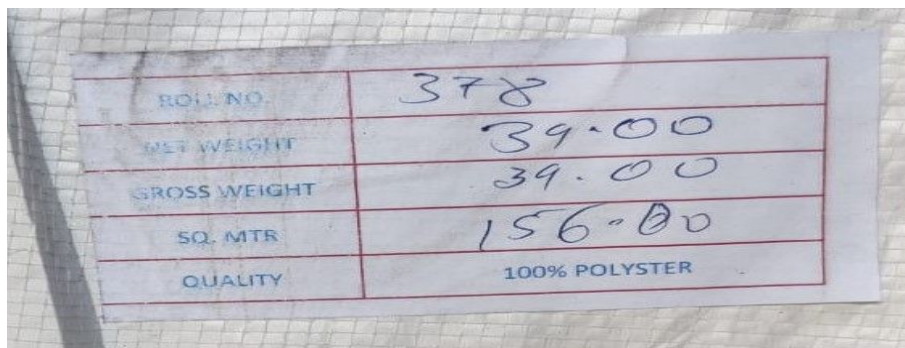 ROLL NO. 378
NET WEIGHT 39.00
GROSS WEIGHT 39.00
SQ. MTR 156.00
QUALITY 100% POLYSTER